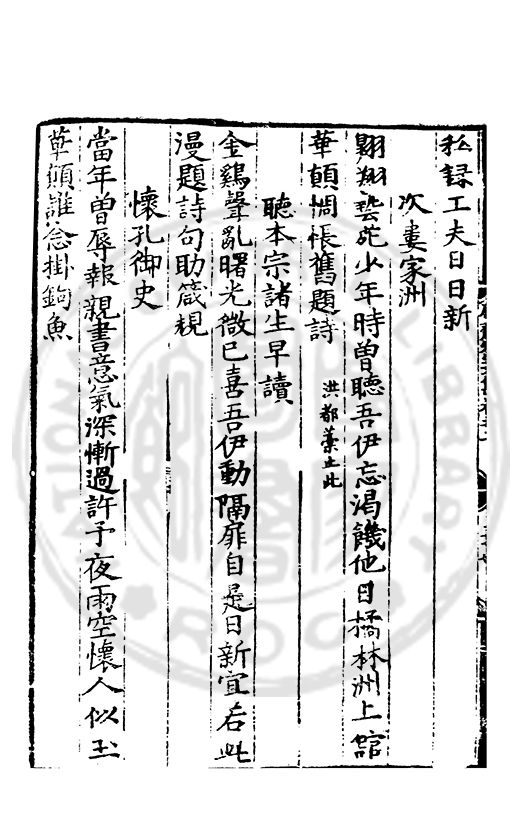 私録工夫日日新
次婁家洲
翺翔藝苑少年時曽聽吾伊忘渴饑他日橘林洲上舘
華顛惆悵舊題詩 洪都藁止此
聽本宗諸生早讀
金鷄聲亂曙光微已喜吾伊動隔扉自是日新宜若此
漫題詩句助箴規
懷孔御史
當年曽辱報親書意氣深慚過許予夜雨空懷人似玉
華顛誰念掛鉤魚